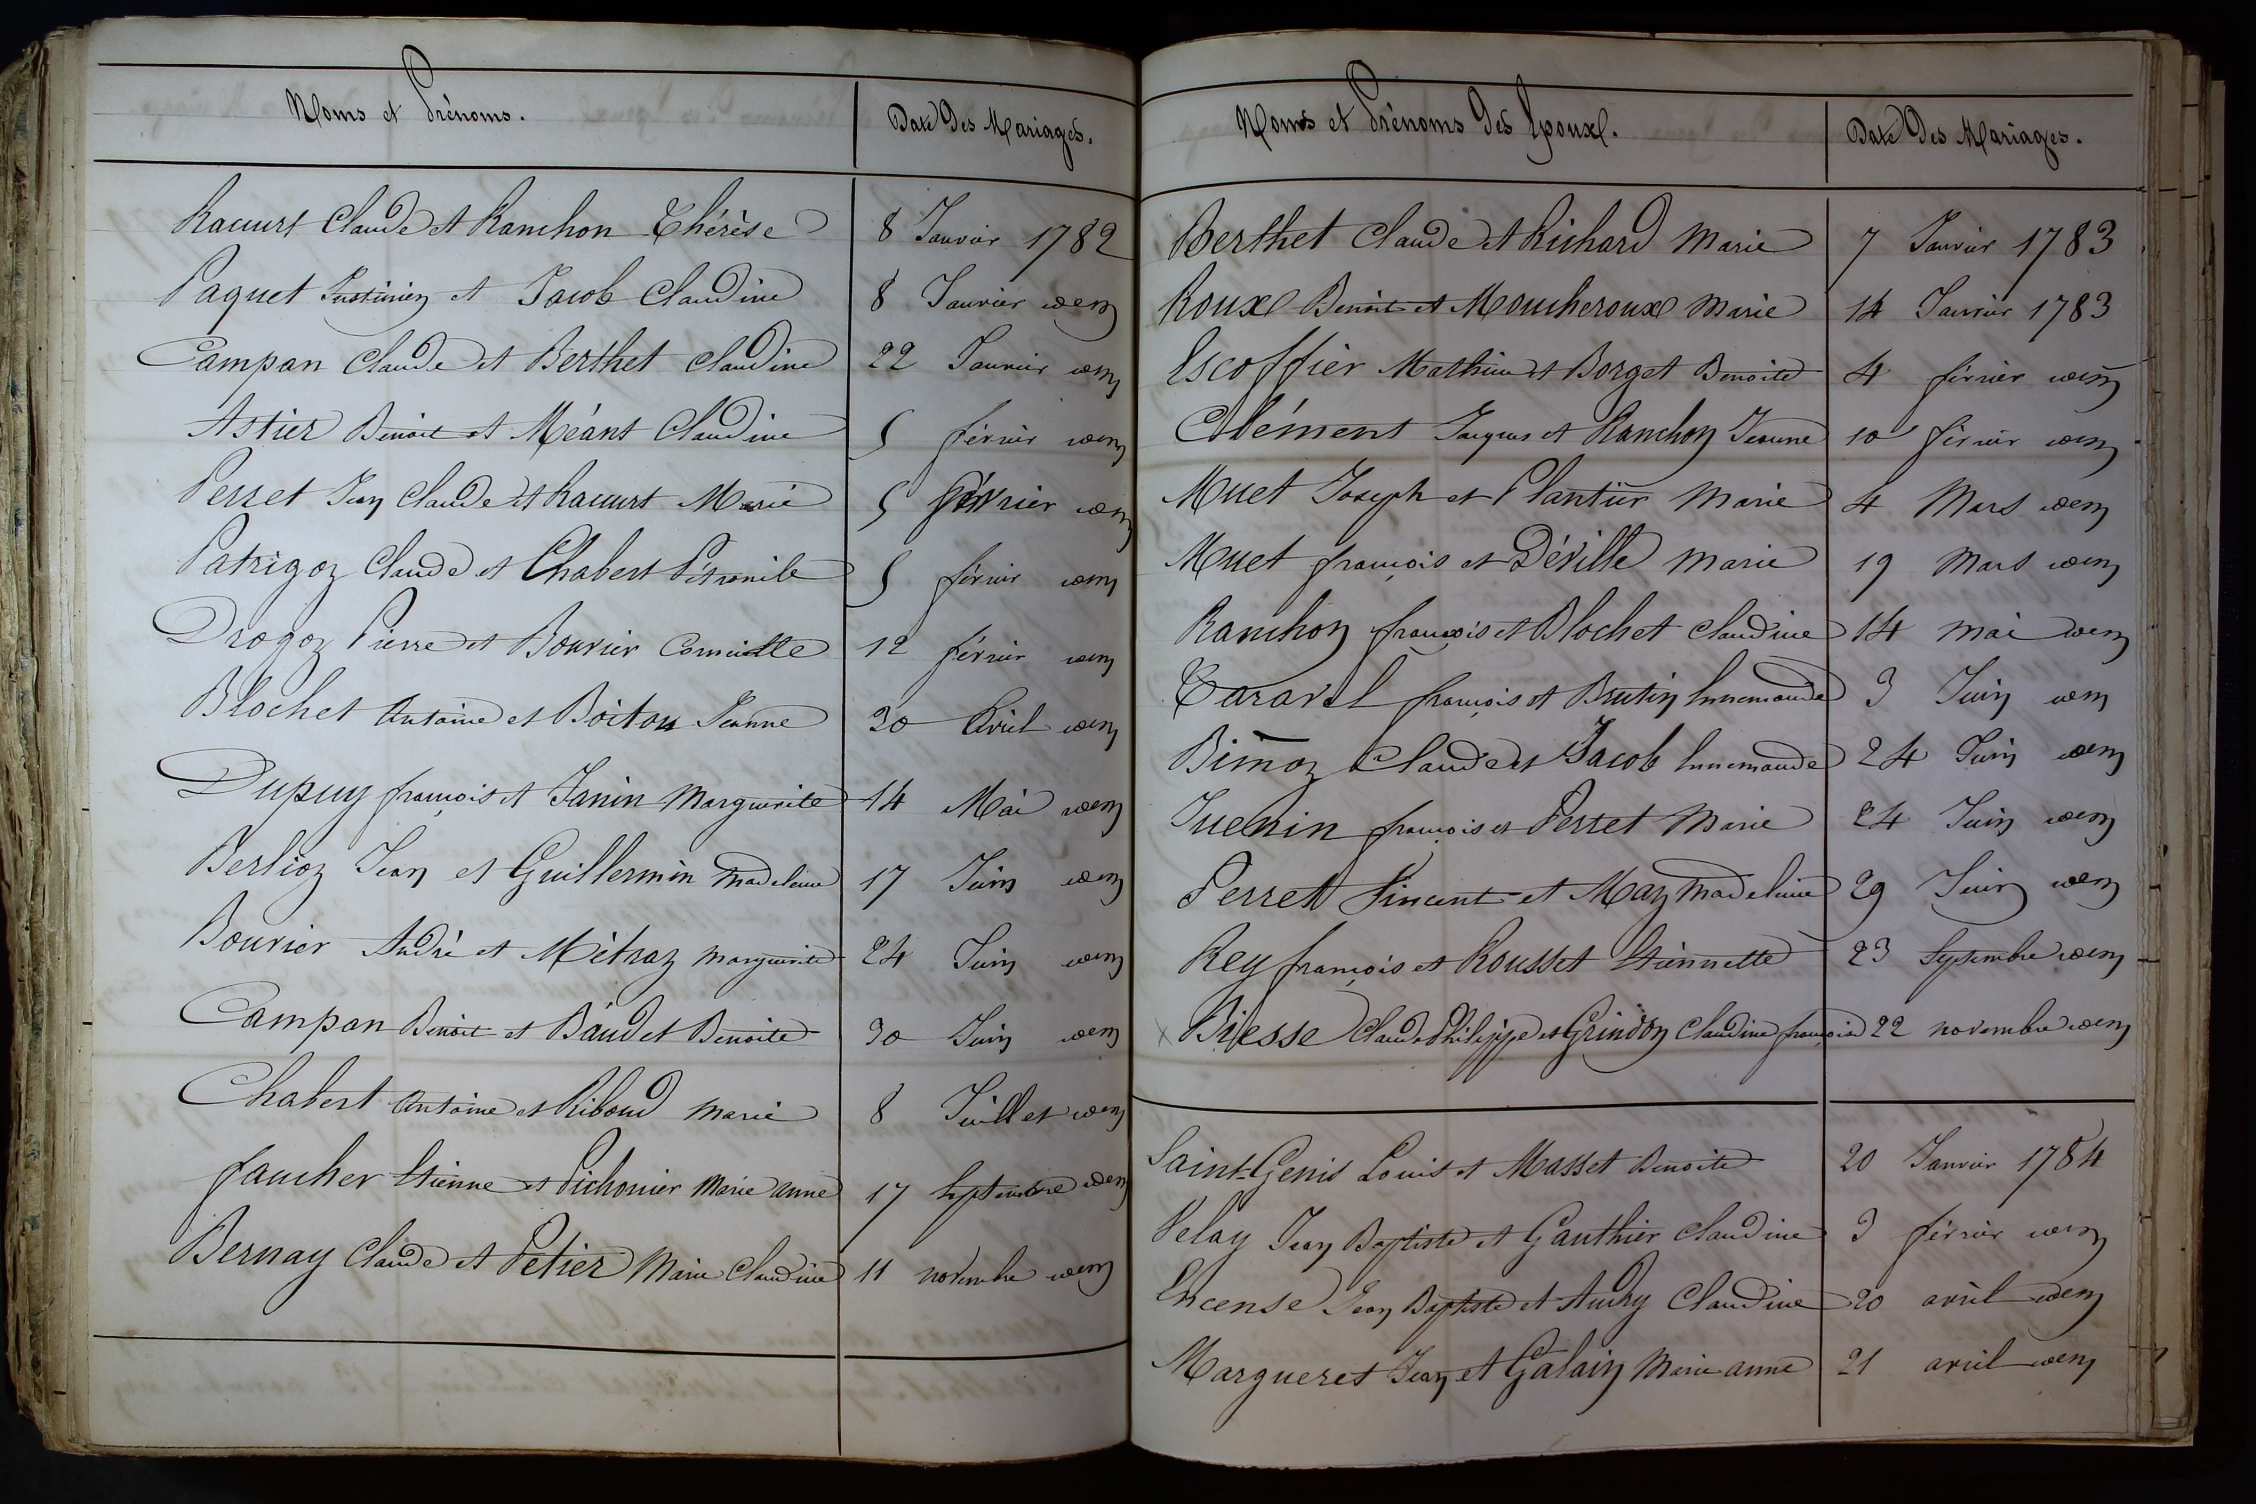 Noms et Prénoms.
Date Des Mariages.
Racurt Claude et Ranchon Thérèse 8 Janvier 1782
Paquet Justinien et Jacob Claudine 8 Janvier idem
Campan Claude et Berthet Claudine 22 Janvier idem
Astier Benoit et Méant Claudine 5 février idem
Perret Jean Claude et Racurt Marie 5 février idem
Patrigoz Claude et Chabert Pétronile 5 février idem
Drogoz Pierre et Bouvier 12 février idem
Blochet Antoine et Boiton Jeanne 30 Avril idem
Dupuy françois et Janin Marguerite 14 Mai idem
Berlioz Jean et Guillermin Madeleine 17 Juin idem
Bouvier André et Métraz Marguerite 24 Juin idem
Campan Benoit et Baudet Benoite 30 Juin idem
Chabert Antoine et Riboud Marie 8 Juillet idem
faucher Etienne et Pichonier Marie anne 17 Septembre idem
Bernay Claude et Petier Marie Claudine 11 novembre idem
Noms et Prénoms Des Epoux.
Date Des Mariages.
Berthet Claude et Richard Marie 7 Janvier 1783
Roux Benoit et Moucheroux Marie 14 Janvier 1783
Escoffier Mathieu et Borget Benoite 4 février idem
Clément Jacques et Ranchon Jeanne 10 février idem
Muet Joseph et Plantier Marie 4 Mars idem
Muet françois et Déville Marie 19 Mars idem
Ranchon françois et Blochet Claudine 14 mai idem
Taravel françois et Brutin Ennemande 3 Juin idem
Bimoz Claude et Jacob Ennemande 24 Juin idem
Juenin françois et Perret Marie 24 Juin idem
Perret Vincent et May Madeleine 29 Juin idem
Rey françois et Rousset Etiennette 23 Septembre idem
x Biesse Claude Philippe et Grindon Claudine françoise 22 novembre idem
Saint-Genis Louis et Masset Benoite 20 Janvier 1784
Velay Jean Baptiste et Gauthier Claudine 3 février idem
Encense Jean Baptiste et Audry Claudine 20 avril idem
Margueret Jean et Galain Marie anne 21 avril idem